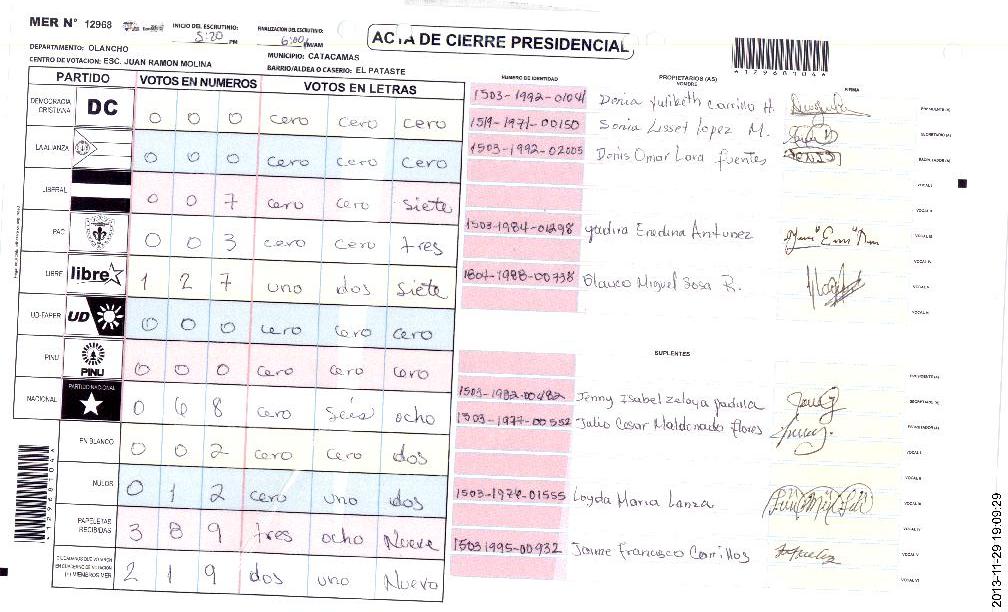 MER N° 12968
INICIO DEL ESCRUTINIO: 5:20 PM
FINALIZACION DEL ESCRUTINIO: 6:00 PM/AM
ACTA DE CIERRE PRESIDENCIAL
DEPARTAMENTO: OLANCHO
MUNICIPIO: CATACAMAS
CENTRO DE VOTACION: ESC. JUAN RAMON MOLINA
BARRIO/ALDEA O CASERIO: EL PATASTE
*12968104*
PARTIDO VOTOS EN NUMEROS VOTOS EN LETRAS
DEMOCRACIA CRISTIANA DC 0 0 0 cero cero cero
LA ALIANZA 0 0 0 cero cero cero
LIBERAL 0 0 7 cero cero siete
PAC 0 0 3 cero cero tres
LIBRE libre 1 2 7 uno dos siete
UD-FAPER UD 0 0 0 cero cero cero
PINU PINU 0 0 0 cero cero cero
NACIONAL PARTIDO NACIONAL 0 6 8 cero seis ocho
EN BLANCO 0 0 2 cero cero dos
NULOS 0 1 2 cero uno dos
PAPELETAS RECIBIDAS 3 8 9 tres ocho Nueve
CIUDADANOS QUE VOTARON EN CUADERNO DE VOTACION (+) MIEMBROS MER 2 1 9 dos uno Nueve
NUMERO DE IDENTIDAD PROPIETARIOS (AS) NOMBRE FIRMA
1503-1992-01041 Dunia Yulibeth Carrillo H. PRESIDENTE (A)
1519-1971-00150 Sonia Lisset Lopez M. SECRETARIO (A)
1503-1992-02005 Denis Omar Lara fuentes ESCRUTADOR (A)
VOCAL I
VOCAL II
1503-1984-01298 Yadira Enedina Antunez VOCAL III
VOCAL IV
1807-1988-00738 Blanco Miguel Sosa R. VOCAL V
VOCAL VI
SUPLENTES
PRESIDENTE (A)
1503-1982-00482 Jenny Isabel Zelaya padilla SECRETARIO (A)
1503-1977-00552 Julio Cesar Maldonado flores ESCRUTADOR (A)
VOCAL I
VOCAL II
1503-1974-01555 Loyda Maria Lanza VOCAL III
VOCAL IV
1503 1995-00932 Jaime Francisco Carrillos VOCAL V
VOCAL VI
*12968104*
2013-11-29 19:09:29